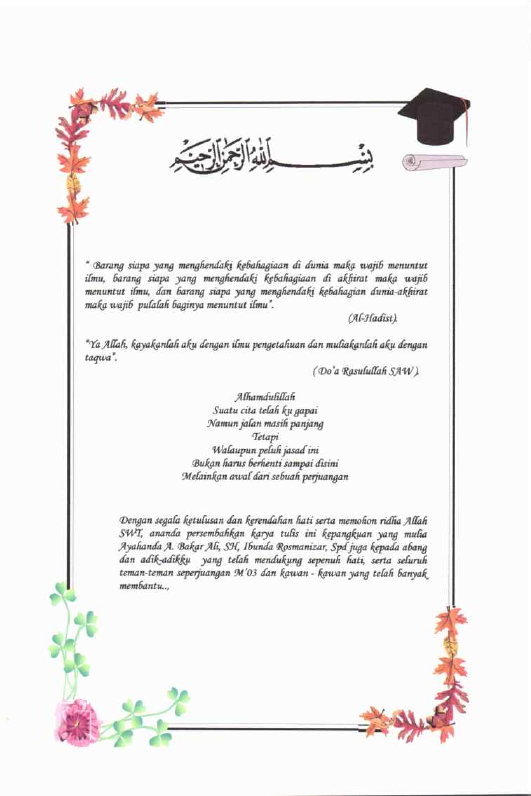 بِسْمِ اللهِ الرَّحْمٰنِ الرَّحِيْمِ
“ Barang siapa yang menghendaki kebahagiaan di dunia maka wajib menuntut
ilmu, barang siapa yang menghendaki kebahagiaan di akhirat maka wajib
menuntut ilmu, dan barang siapa yang menghendaki kebahagian dunia-akhirat
maka wajib pulalah baginya menuntut ilmu”.
(Al-Hadist).
“Ya Allah, kayakanlah aku dengan ilmu pengetahuan dan muliakanlah aku dengan
taqwa”.
( Do’a Rasulullah SAW ).
Alhamdulillah
Suatu cita telah ku gapai
Namun jalan masih panjang
Tetapi
Walaupun peluh jasad ini
Bukan harus berhenti sampai disini
Melainkan awal dari sebuah perjuangan
Dengan segala ketulusan dan kerendahan hati serta memohon ridha Allah
SWT, ananda persembahkan karya tulis ini kepangkuan yang mulia
Ayahanda A. Bakar Ali, SH, Ibunda Rosmanizar, Spd juga kepada abang
dan adik-adikku yang telah mendukung sepenuh hati, serta seluruh
teman-teman seperjuangan M’03 dan kawan - kawan yang telah banyak
membantu..,